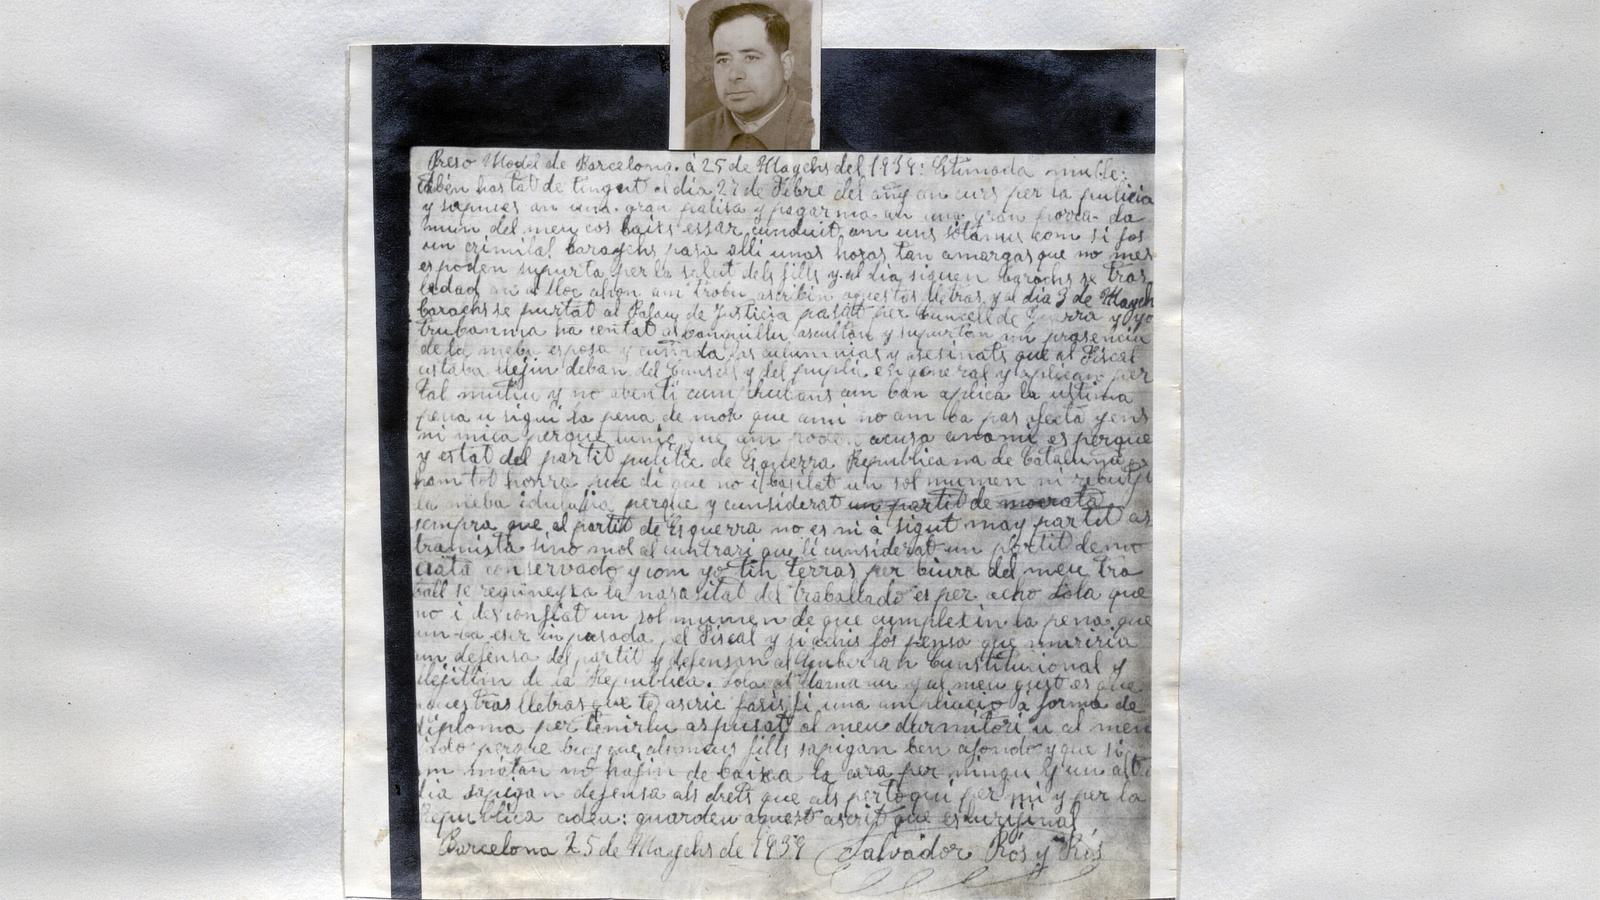 Preso Model de Barcelona. á 25 de Maychs del 1939: Estimada
tabén has tat de tingut el dia 27 de Febre del añy an curs per la pulicia
y supues an una gran palisa y pagarma an una gran porra da
munn del meu cos baits essar cunduit am uns sótanus com si fos
un crimilal baraychs pasa alli unas horas tan amargas que no mes
es poden supurta per la salut dels fills y al dia siguen baraychs se tras
ladad an a lloc ahon am trobu ascribin aquestas lletras y al dia 3 de Maych
baraychs se purtat al Palau de Justicia pasat per Cunsell de Guerra y yo
trubanma ha centat al banquillu ascultan y supurtan an prasencia
de la meba esposa y cuñada las calumnias y asesinats que al Fiscal
astaba llejin deban del Cunsell y del puplic en general y aplican per
tal mutiu y no abenti cumprubans am ban aplica la ustima
pena u sigui la pena de mor que ami no am ba pas afecta gens
ni mica perque lunic que am poden acusa anami es perque
y estat del partit pulitic de Esquerra Republicana de Catalunya
ham tot honra puc di que no i basilat un sol mumen ni rebuty
la meba idulugia perque y cunsiderat un partit de mocrata
sempra que al partit de Esquerra no es ni á sigut may partit as
tramista sino mol al cuntrari que li cunsiderat un partit demo
crata conservado y com yo tih terras per biura del meu tra
ball se reguneysa la nasasitat del traballado es per acho Lola que
no i desconfiat un sol mumen de que cumpletin la pena que
am ba eser inpasada pel Fiscal y si achis fos pensa que muriria
an defensa del partit y defensan al Gubernan Constitucional y
llejitim de la Republica. Lola al dama un y al meu gust es que
aquestas lletras que te ascric fasis fi una ampliacio a forma de
diploma per tenirlu aspusat al meu durmitori u al meu
perque buy que als meus fills sapigan ben afondo y que si
am matan no hajin de baixa la cara per ningu y un altra
dia sapigan defensa als drets que als pertoqui per mi y per la
Republica adeu: guarden aquest ascrit que es urijinal
Barcelona 25 de Maychs de 1939 Salvador Rós y Rós